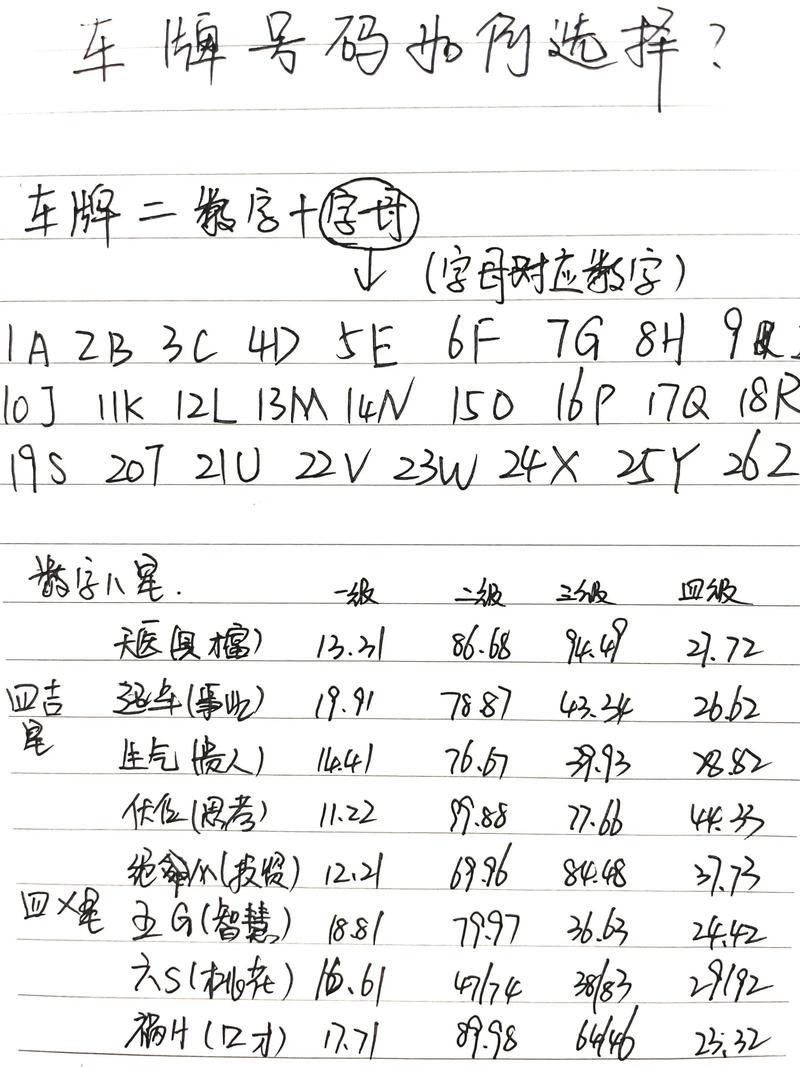 车牌号码如何选择?
车牌二数字+字母
(字母对应数字)
1A 2B 3C 4D 5E 6F 7G 8H 9
10J 11K 12L 13M 14N 15O 16P 17Q 18R
19S 20T 21U 22V 23W 24X 25Y 26Z
数字八星.
一级 二级 三级 四级
天医(财富) 13.31 86.68 94.49 27.72
四吉星
延年(事业) 19.91 78.87 43.34 26.62
生气(贵人) 14.41 76.67 39.93 28.82
伏位(思考) 11.22 99.88 77.66 44.33
绝命M(投资) 12.21 69.96 84.48 37.73
四X星
五G(智慧) 18.81 79.97 36.63 24.42
六S(桃花) 16.61 47/74 38/83 29/92
祸H(口才) 17.71 89.98 64/46 23.32